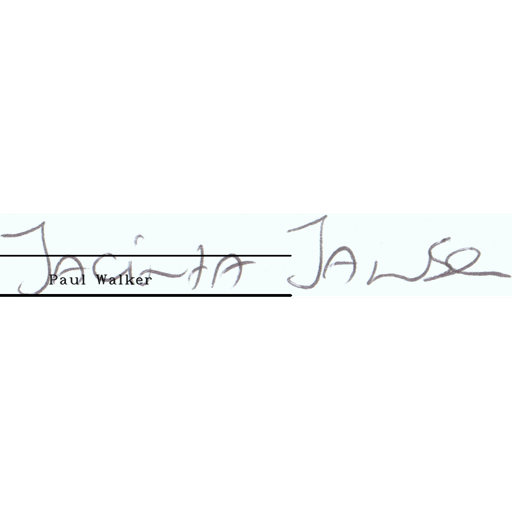 Jacinta Jansz
Paul Walker